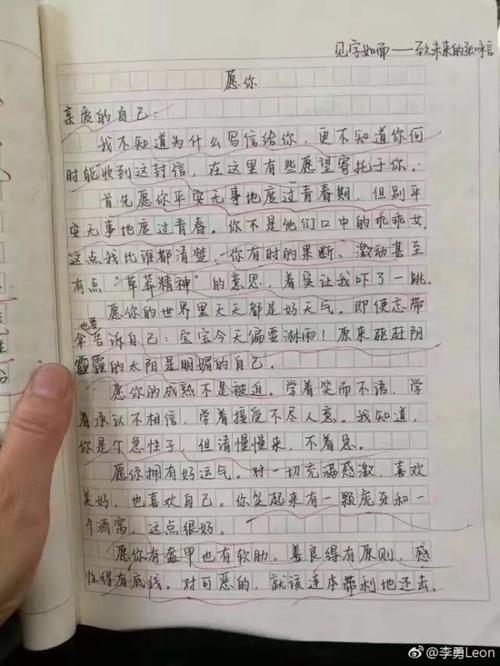 见字如面——致未来的张
愿你
亲爱的自己：
我不知道为什么写信给你，更不知道你何
时能收到这封信，在这里有些愿望寄托于你。
首先愿你平安无事地度过青春期，但别平
安无事地度过青春。你不是他们口中的乖乖女，
这点我比谁都清楚，你有时的果断、激动甚至
有点“草莽精神”的意思，着实让我吓了一跳。
愿你的世界里天天都是好天气。即使忘带
伞也要告诉自己：宝宝今天偏要淋雨！原来驱赶阴
霾的太阳是明媚的自己。
愿你的成熟不是被迫。学着笑而不语，学
着承认不相信，学着接受不尽人意。我知道，
你是个急性子，但请慢慢来，不着急。
愿你拥有好运气。对一切充满感激，喜欢
美好，也喜欢自己。你笑起来有一颗虎牙和一
个酒窝，这点很好。
愿你有盔甲也有软肋。善良得有原则，感
性得有底线。对可恶的，就该连本带利地还去。
@李勇Leon